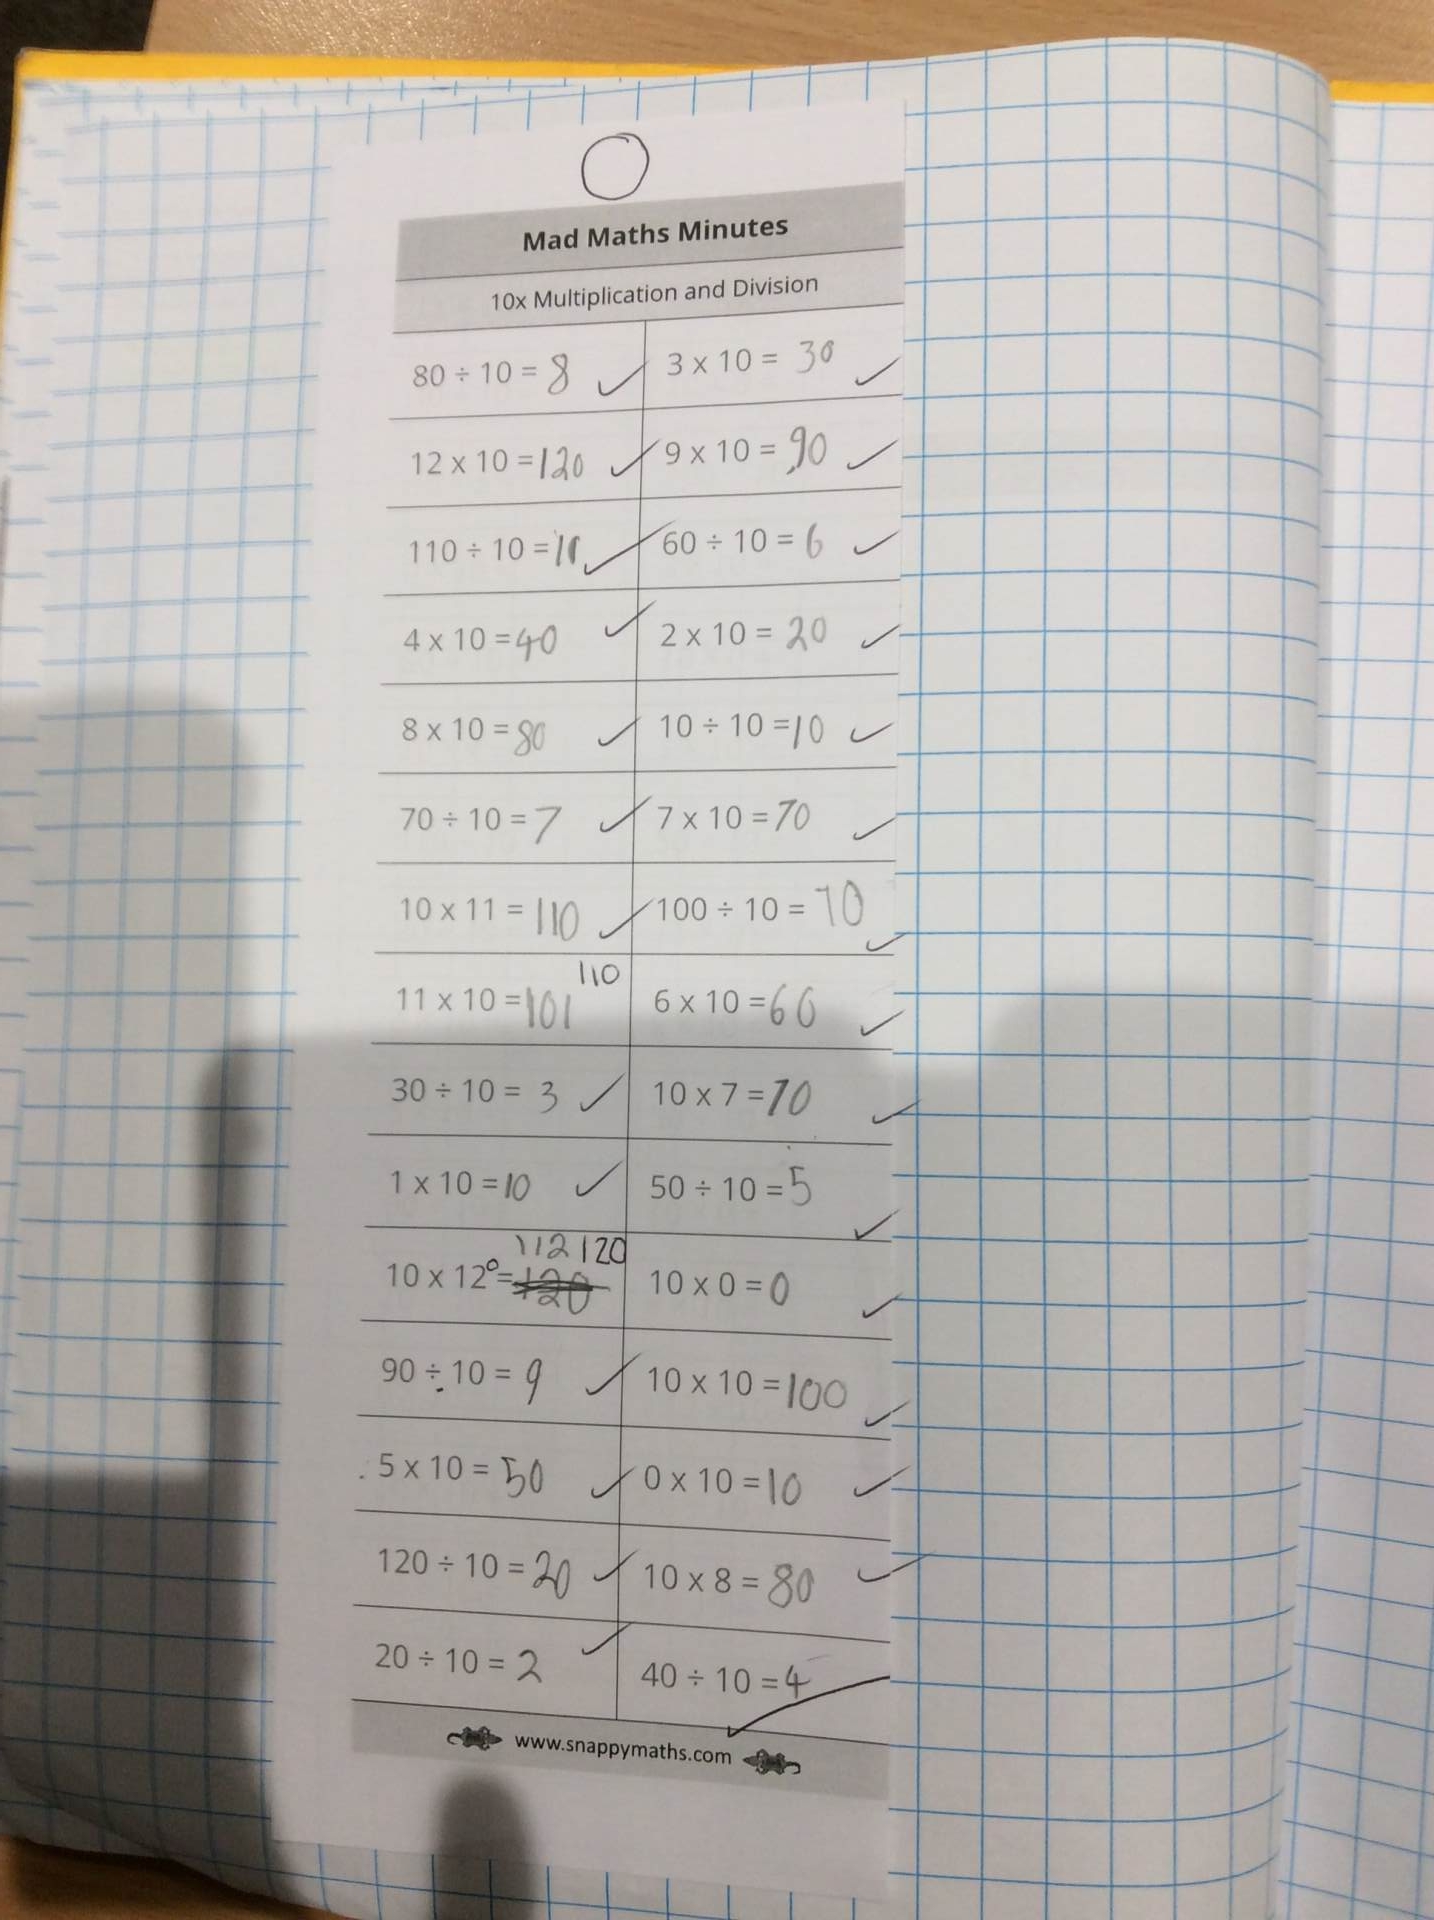 Mad Maths Minutes
10x Multiplication and Division
80 ÷ 10 = 8
3 x 10 = 30
12 x 10 = 120
9 x 10 = 90
110 ÷ 10 = 11
60 ÷ 10 = 6
4 x 10 = 40
2 x 10 = 20
8 x 10 = 80
10 ÷ 10 = 10
70 ÷ 10 = 7
7 x 10 = 70
10 x 11 = 110
100 ÷ 10 = 10
110
11 x 10 = 101
6 x 10 = 60
30 ÷ 10 = 3
10 x 7 = 70
1 x 10 = 10
50 ÷ 10 = 5
112 120
10 x 12° = 120
10 x 0 = 0
90 ÷ 10 = 9
10 x 10 = 100
5 x 10 = 50
0 x 10 = 10
120 ÷ 10 = 20
10 x 8 = 80
20 ÷ 10 = 2
40 ÷ 10 = 4
www.snappymaths.com